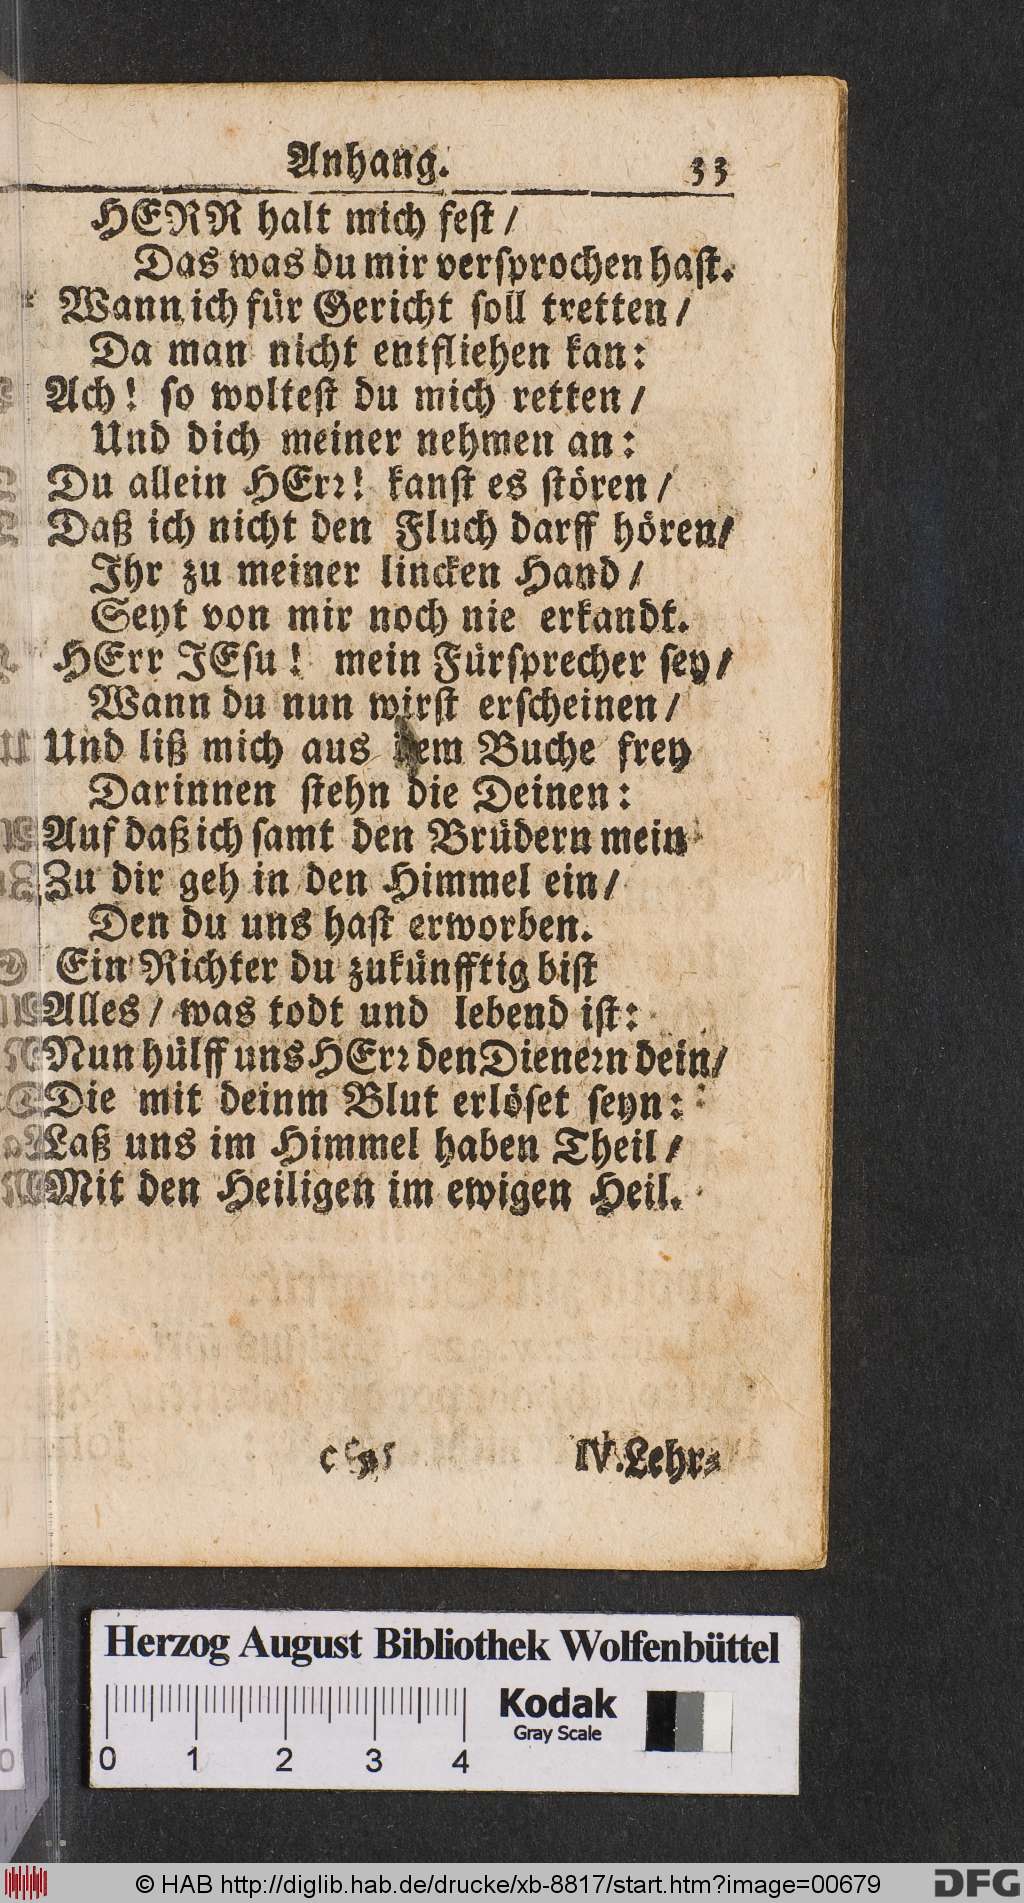 Anhang. 33
HERR halt mich fest /
Das was du mir versprochen hast.
Wann ich für Gericht soll tretten /
Da man nicht entfliehen kan:
Ach! so woltest du mich retten /
Und dich meiner nehmen an:
Du allein HErr! kanst es stören /
Daß ich nicht den Fluch darff hören/
Ihr zu meiner lincken Hand /
Seyt von mir noch nie erkandt.
HErr JEsu! mein Fürsprecher sey /
Wann du nun wirst erscheinen /
Und liß mich aus dem Buche frey
Darinnen stehn die Deinen:
Auf daß ich samt den Brüdern mein
Zu dir geh in den Himmel ein /
Den du uns hast erworben.
Ein Richter du zukünfftig bist
Alles / was todt und lebend ist:
Nun hülff uns HErr den Dienern dein /
Die mit deinm Blut erlöset seyn:
Laß uns im Himmel haben Theil /
Mit den Heiligen im ewigen Heil.
IV. Lehr-
Herzog August Bibliothek Wolfenbüttel
Kodak
Gray Scale
0 1 2 3 4
© HAB http://diglib.hab.de/drucke/xb-8817/start.htm?image=00679
DFG